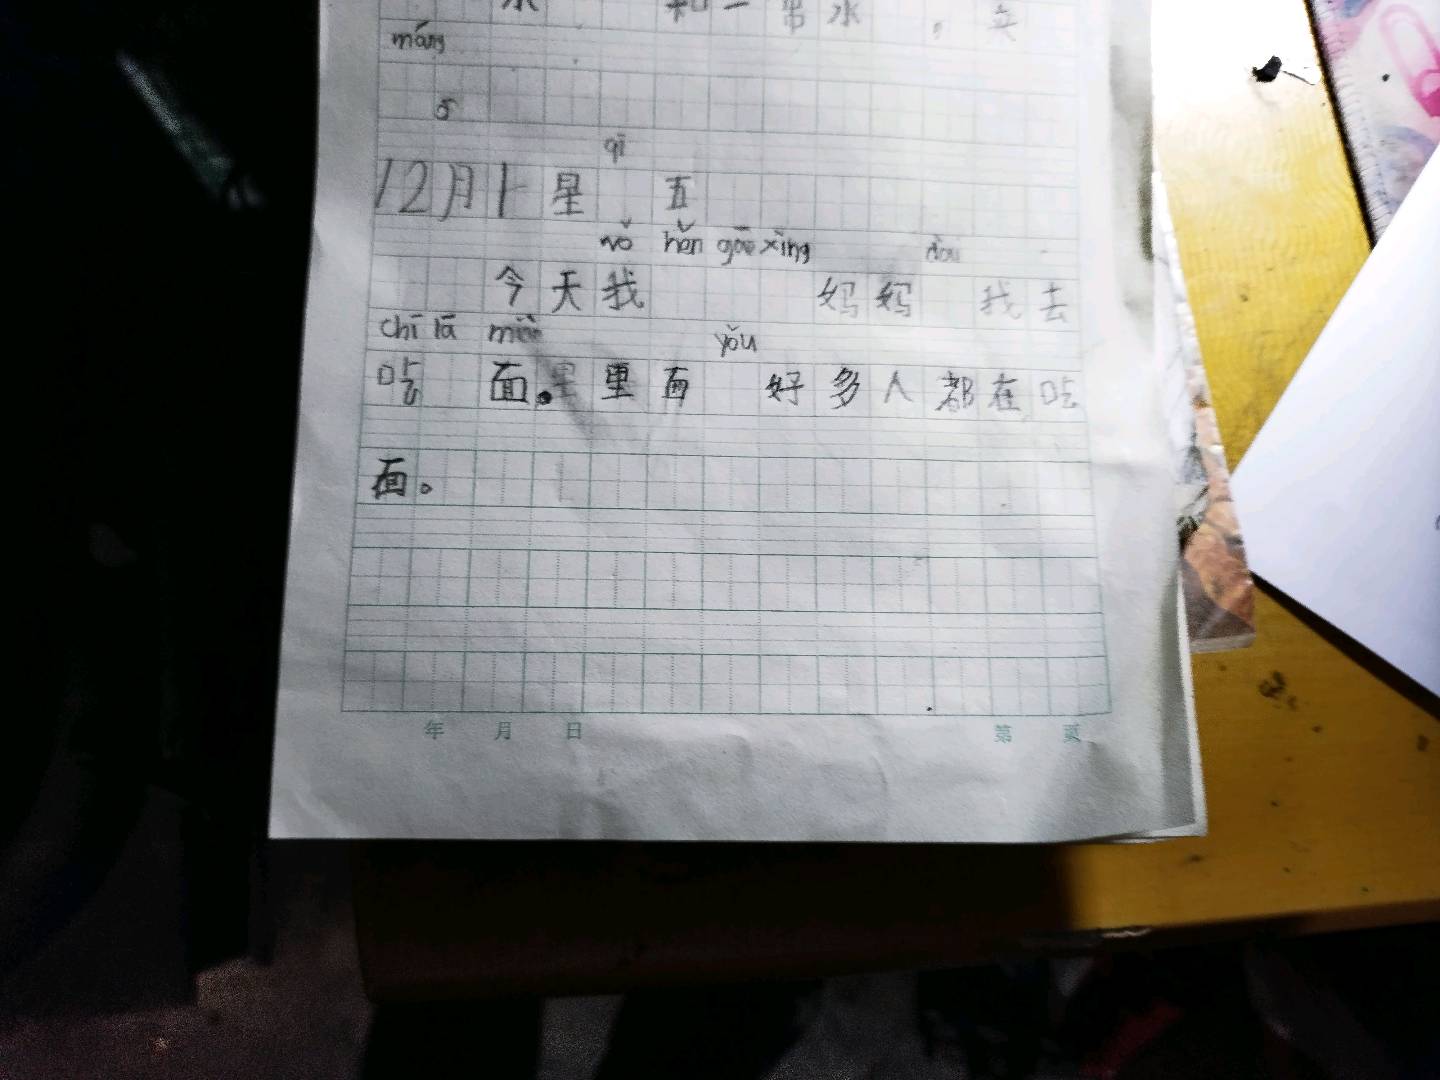 水 和一 常水 ，买
máng
qī
12月1 星 五
wǒ hěn gāo xìng
今天我 妈妈 我去
chī lā miàn yǒu
吃 面。里面 好多人都在吃
面。
年 月 日 第 页